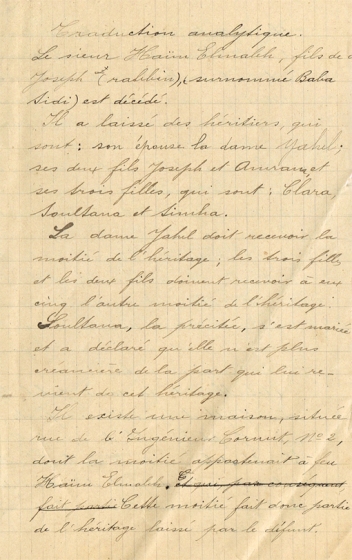 Traduction analytique.
Le sieur Haïm Elmalih, fils de
Joseph (rabbin), surnommé Baba
Sidi) est décédé.
Il a laissé des héritiers, qui
sont : son épouse la dame Yahel;
ses deux fils Joseph et Amram, et
ses trois filles, qui sont : Clara,
Soultana et Simha.
La dame Yahel doit recevoir la
moitié de l'héritage; les trois filles
et les deux fils doivent recevoir à eux
cinq l'autre moitié de l'héritage.
Soultana, la précitée, s'est mariée
et a déclaré qu'elle n'est plus
créancière de la part qui lui re-
vient du cet héritage.
Il existe une maison, située
rue de l'Ingénieur Cornut, No 2,
dont la moitié appartenait à feu
Haïm Elmalih. Et qui, par conséquent
fait partie Cette moitié fait donc partie
de l'héritage laissé par le défunt.